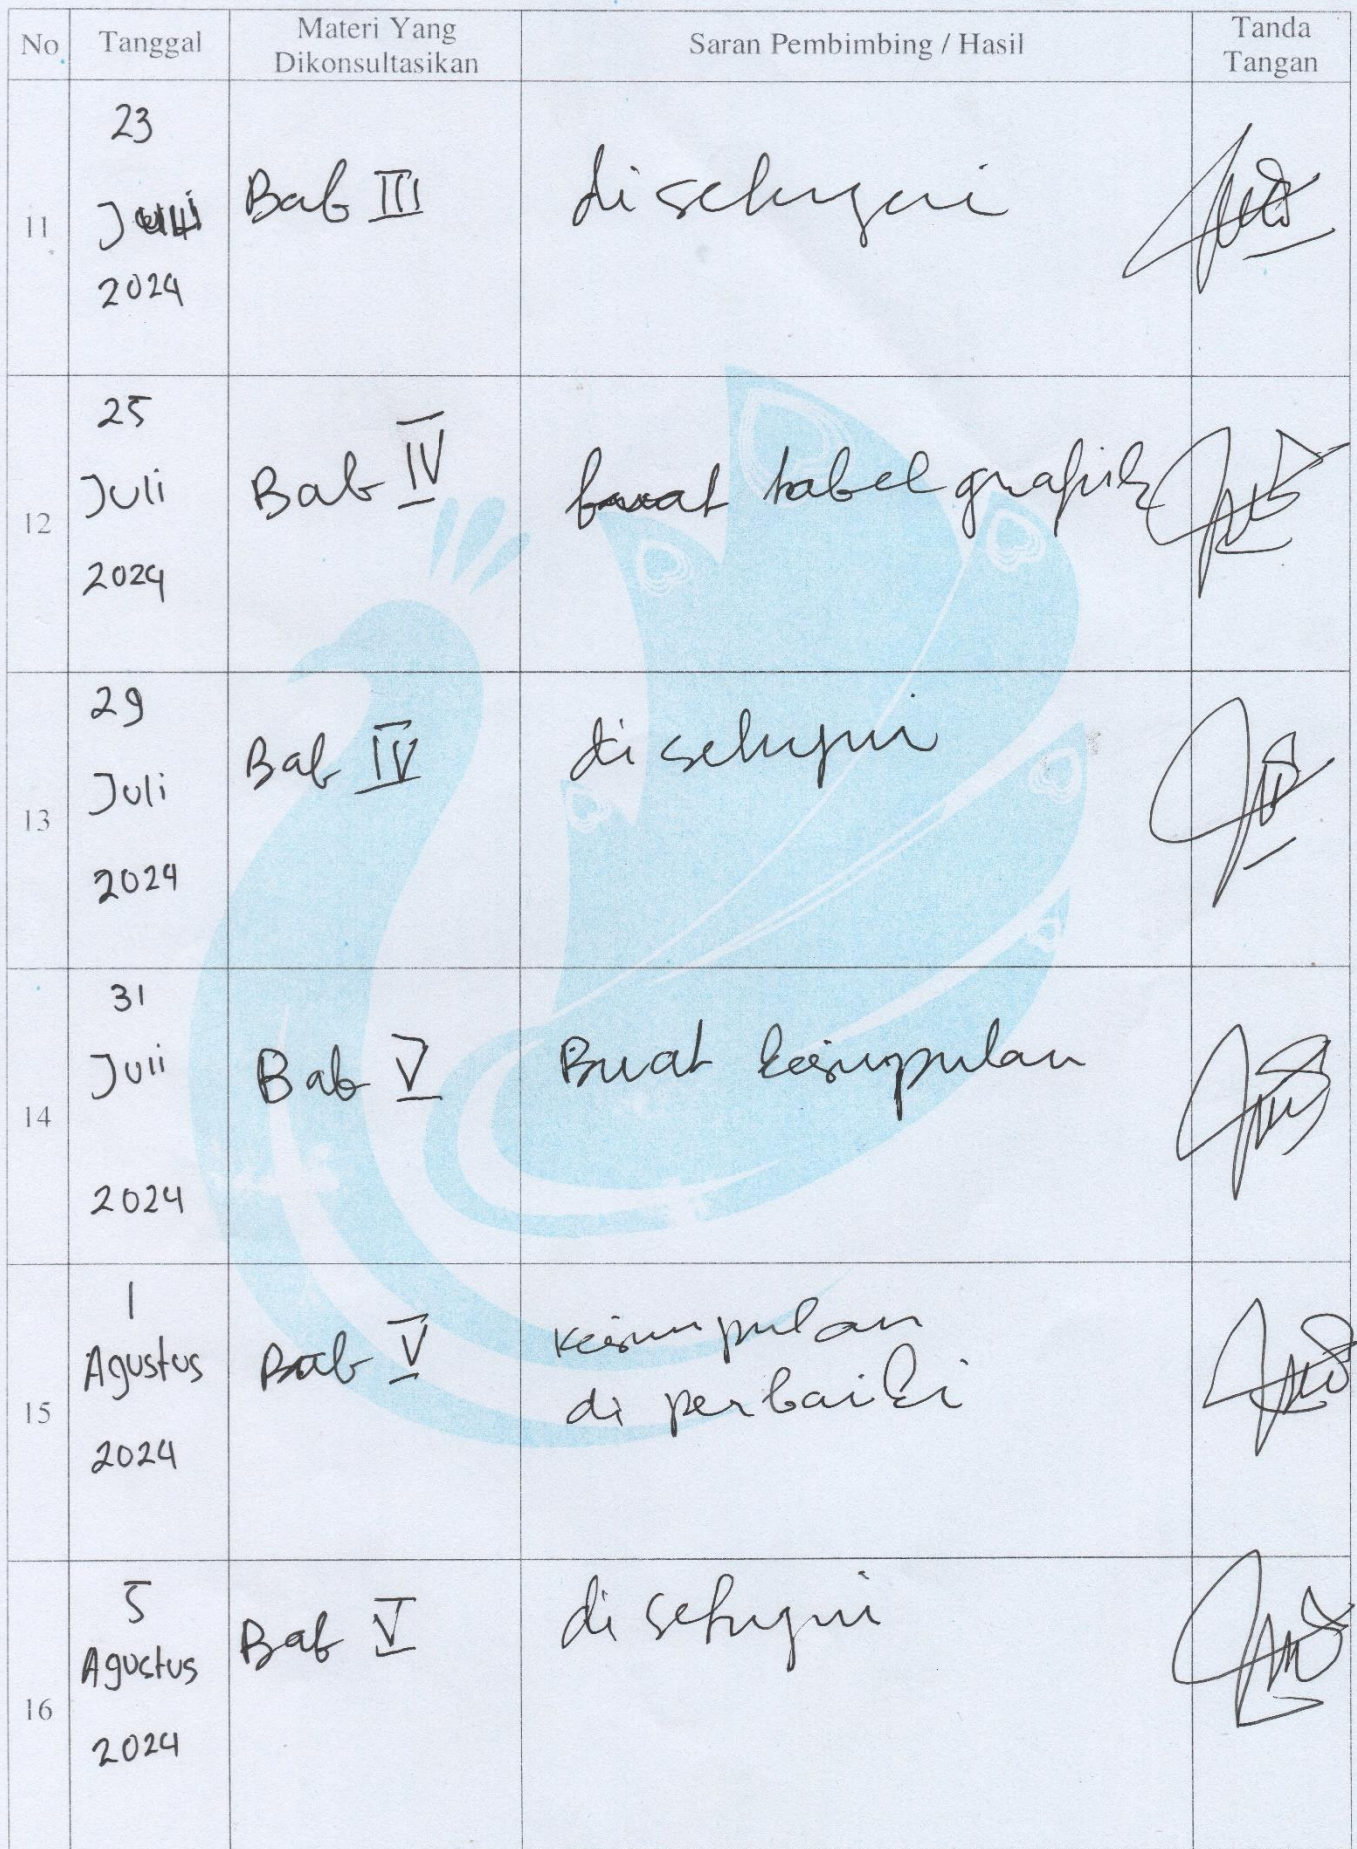 No Tanggal Materi Yang Dikonsultasikan Saran Pembimbing / Hasil Tanda Tangan
11
23
2024
Bab III
disetujui
12
25
Juli
2024
Bab IV
buat tabel grafik
13
29
Juli
2024
Bab IV
disetujui
14
31
Juli
2024
Bab V
Buat kesimpulan
15
1
Agustus
2024
Bab V
Kesimpulan
di perbaiki
16
5
Agustus
2024
Bab V
disetujui